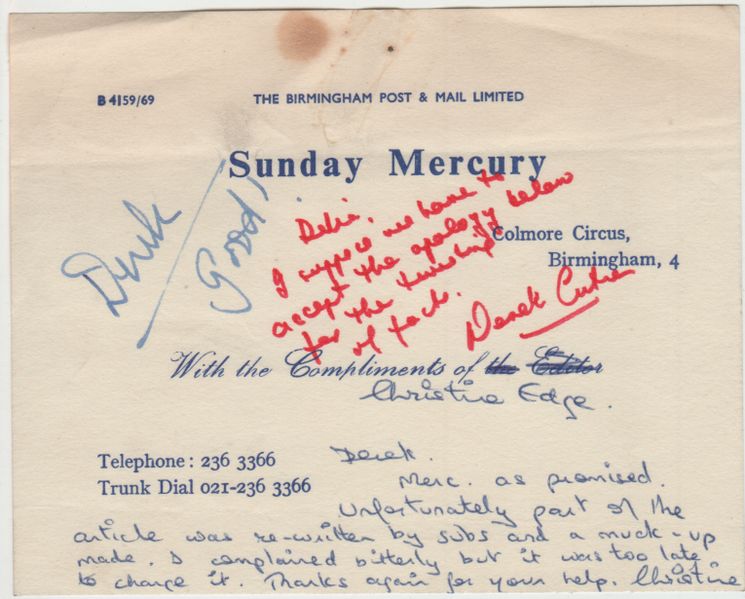 B 4159/69
THE BIRMINGHAM POST & MAIL LIMITED
Sunday Mercury
Colmore Circus,
Birmingham, 4
Derek
Good!
I suppose we have to
accept the apology below
for the twisting
of facts.
Derek
With the Compliments of the Editor
Christine Edge.
Telephone: 236 3366
Trunk Dial 021-236 3366
Derek.
Merc. as promised.
Unfortunately part of the
article was re-written by subs and a muck-up
made. I complained bitterly but it was too late
to change it. Thanks again for your help. Christine